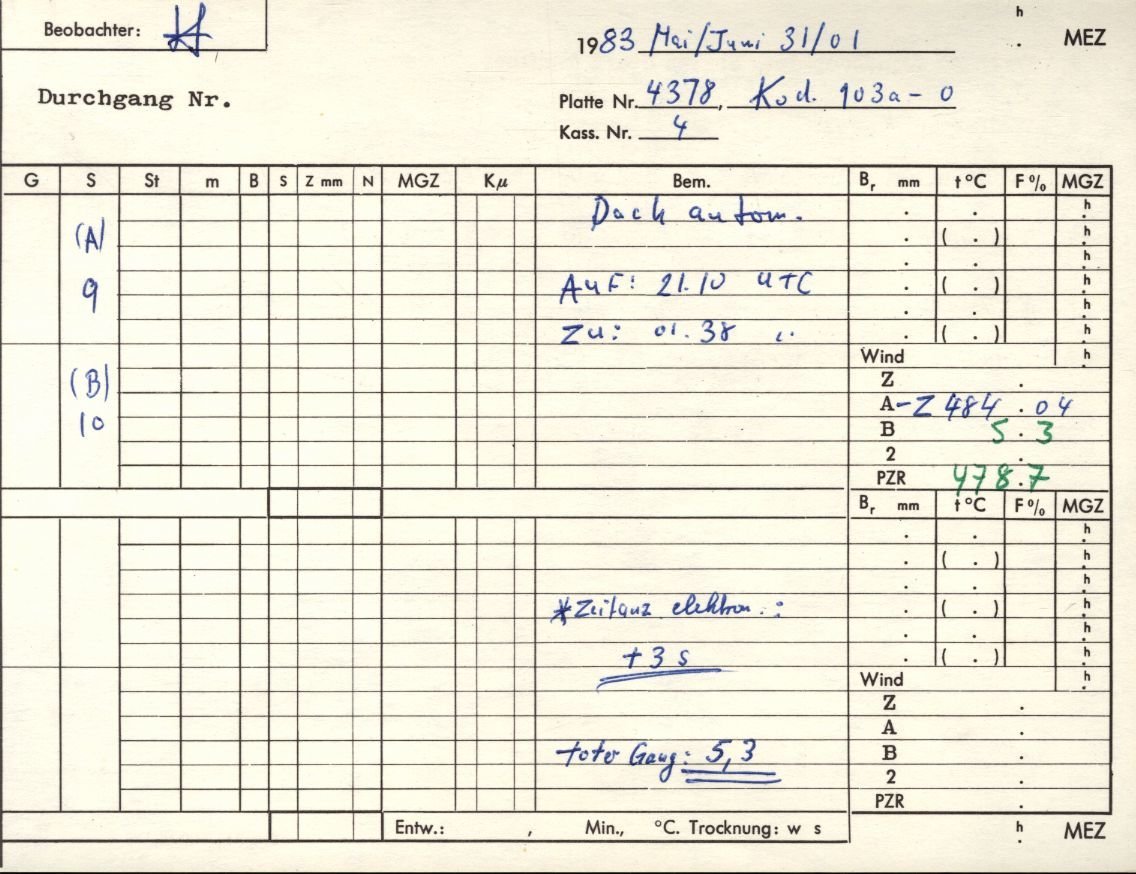 Beobachter:
h
1983 Mai/Juni 31/01 . MEZ
Durchgang Nr.
Platte Nr. 4378, Kod. 103a-0
Kass. Nr. 4
G S St m B S Z mm N MGZ Kµ Bem. Br mm t °C F% MGZ
Dach autom. . . h
(A) . ( . ) h
. . h
9 Auf: 21.10 UTC . ( . ) h
. . h
Zu: 01.38 " . ( . ) h
Wind h
(B) Z .
A-Z 484.04
10 B 5.3
2 .
PZR 478.7
Br mm t °C F% MGZ
. . h
. ( . ) h
. . h
*Zeitanz elektron.: . ( . ) h
. . h
+3 s . ( . ) h
Wind h
Z .
A .
toter Gang: 5,3 B .
2 .
PZR .
Entw.: , Min., °C. Trocknung: w s h . MEZ